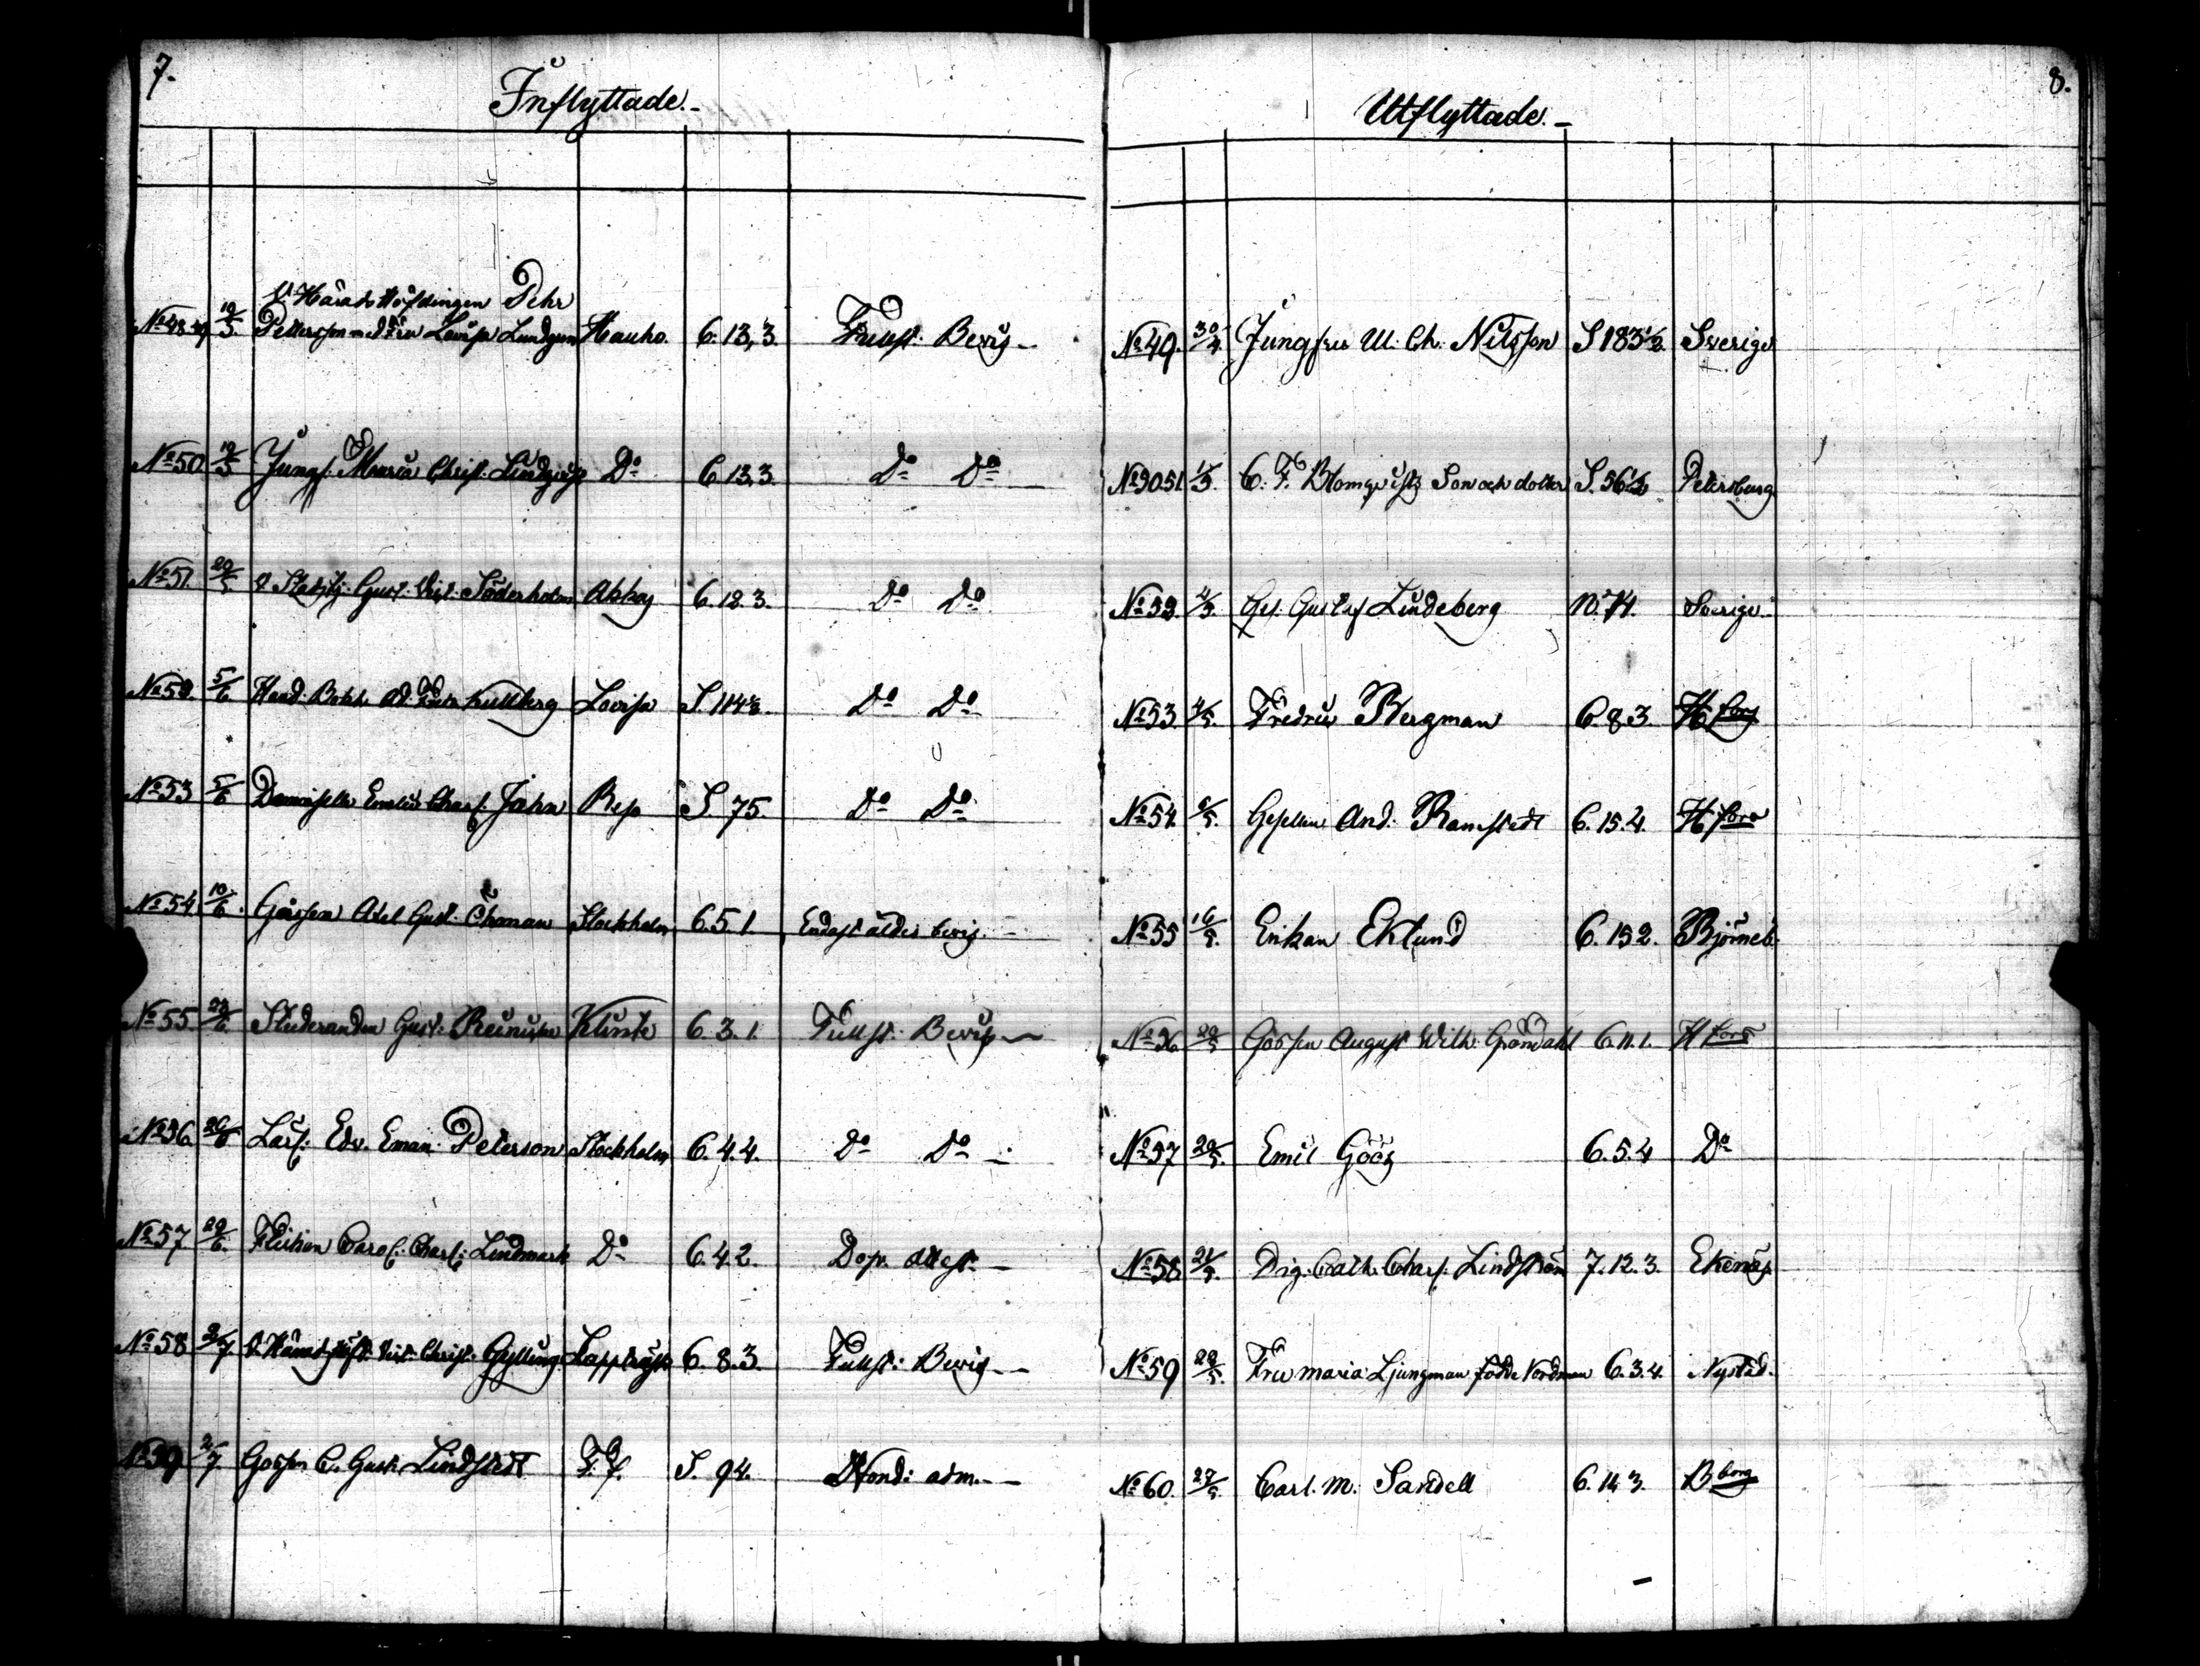 7.
Inflyttade.-
V. Häradshöfdingen Pehr
No 48.49 19/5 Pettersson med Fru Lovisa Lundgren Hauho. 6.13,3. Fullst. Bevis -
No 50 19/5 Jungf. Maria Christ. Do 6.13,3. Do Do
No 51. 29/5 Gust. Söderholm 6.12.3. Do Do
No 52. 5/6 Hand. Bokh. Ad. Kullberg Lovisa S. 114½. Do Do
No 53 5/6 Demoiselle Emelie Charl. Jahn S. 75. Do Do
No 54 10/6. Gossen Axel Gust. Öhman Stockholm 6.5.1. Endast ålders bevis. -
No 55 23/6. Studeranden Gust. 6.3.1. Fullst. Bevis -
No 56. 26/6 Edv. Eman. Peterson Stockholm 6.4.4. Do Do -
No 57. 29/6. Flickan Carol. Charl. Lindmark Do 6.4.2. Dop. attest. -
No 58 2/7 V. Häradshöfd. Christ. Gylling 6.8.3. Fullst. Bevis - -
No 59 2/7. Gossen C. Gust. Lindstedt S. 94. adm. -
8.
Utflyttade. -
No 49. 30/4 Jungfru U. Ch. Nilsson S 183½. Sverige
No 50.51. 1/5. C. F. Blomqvists Son och dotter S. 56½ Petersburg
No 52. 4/5. Ges. Gustaf Lindeberg N. 74. Sverige.
No 53. 4/5. Fredric Bergman 6.8.3. Hfors
No 54. 6/5. Gesellen And. Ramstedt 6.15.4. Hfors
No 55 16/5. Enkan Eklund 6.15 2. Björneb.
No 56 20/5 Gossen August Wilh. Gröndahl 6.11.1. Hfors
No 57 20/5. Emil Göös 6.5.4 Do
No 58 21/5. Pig. Cath. Charl. Lindström 7.12.3. Ekenäs.
No 59 22/5. Fru Maria Ljungman född Nordman 6.3.4. Nystad.
No 60. 27/5. Carl. M. Sandell 6.14 3. Bborg